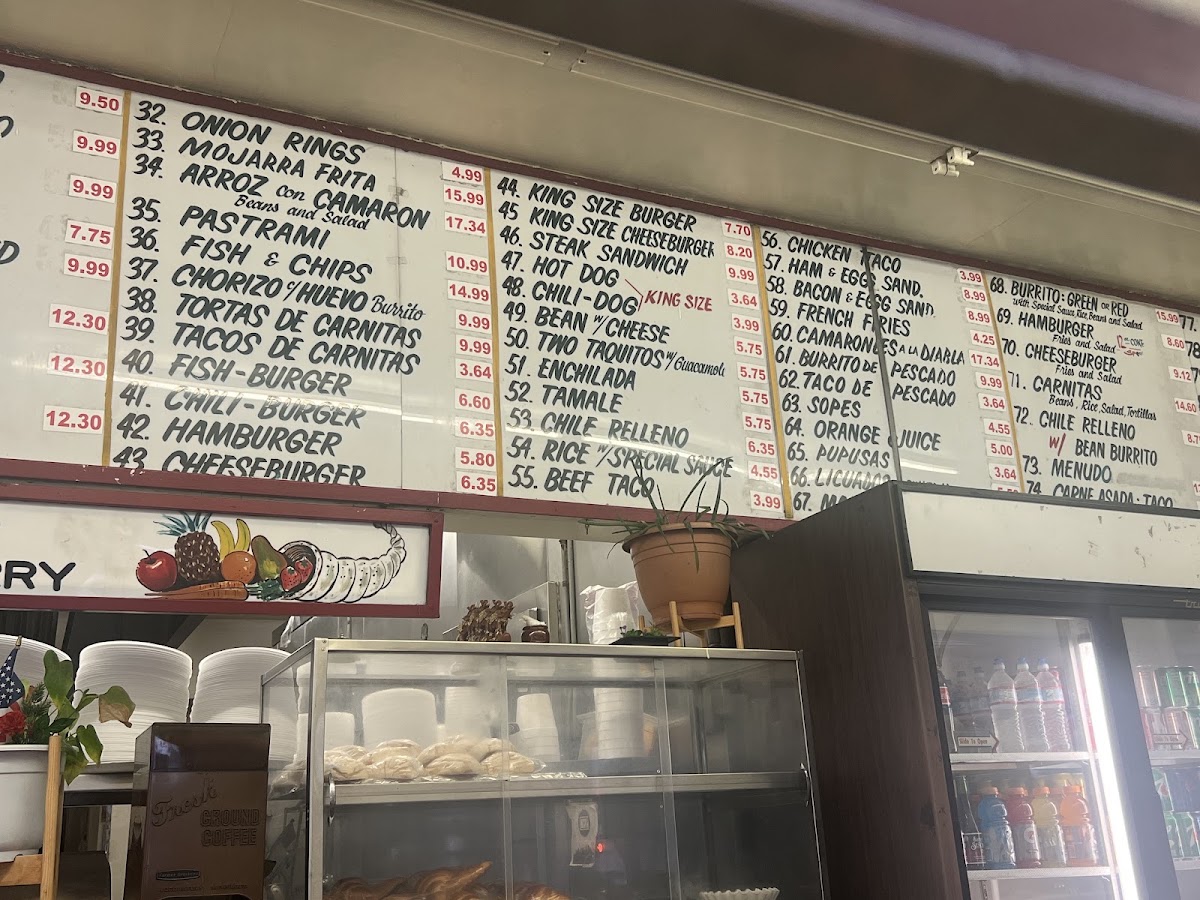 9.50
9.99
9.99
7.75
9.99
12.30
12.30
12.30
32. ONION RINGS 4.99
33. MOJARRA FRITA 15.99
34. ARROZ con CAMARON 17.34
Beans and Salad
35. PASTRAMI 10.99
36. FISH & CHIPS 14.99
37. CHORIZO c/HUEVO Burrito 9.99
38. TORTAS DE CARNITAS 9.99
39. TACOS DE CARNITAS 3.64
40. FISH-BURGER 6.60
41. CHILI-BURGER 6.35
42. HAMBURGER 5.80
43. CHEESEBURGER 6.35
44. KING SIZE BURGER 7.70
45 KING SIZE CHEESEBURGER 8.20
46. STEAK SANDWICH 9.99
47. HOT DOG 3.64
48. CHILI-DOG KING SIZE 3.99
49. BEAN w/ CHEESE 5.75
50. TWO TAQUITOS w/ Guacamole 5.75
51. ENCHILADA 5.75
52. TAMALE 5.75
53. CHILE RELLENO 6.35
54. RICE w/ SPECIAL SAUCE 4.55
55. BEEF TACO 3.99
56. CHICKEN TACO 3.99
57. HAM & EGG SAND. 8.99
58. BACON & EGG SAND. 8.99
59. FRENCH FRIES 4.25
60. CAMARONES A LA DIABLA 17.34
61. BURRITO DE PESCADO 9.99
62. TACO DE PESCADO 3.64
63. SOPES 4.55
64. ORANGE JUICE 5.00
65. PUPUSAS 3.64
66. LICUADO
67.
68. BURRITO: GREEN OR RED 15.99
with Special Sauce, Rice, Beans and Salad
69. HAMBURGER 8.60
Fries and Salad
70. CHEESEBURGER 9.12
Fries and Salad
71. CARNITAS 14.60
Beans, Rice, Salad, Tortillas
72. CHILE RELLENO
w/ BEAN BURRITO
73. MENUDO
74. CARNE ASADA: TACO
77
78
RRY
Fresh
GROUND
COFFEE